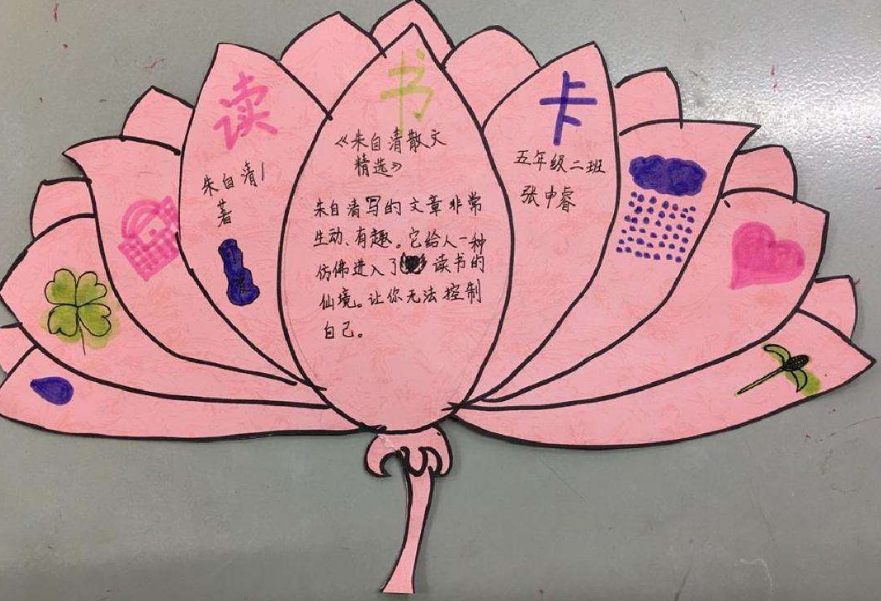 读书卡
朱自清
著
《朱自清散文
精选》
朱自清写的文章非常
生动、有趣。它给人一种
仿佛进入了读书的
仙境。让你无法控制
自己。
五年级二班
张中睿